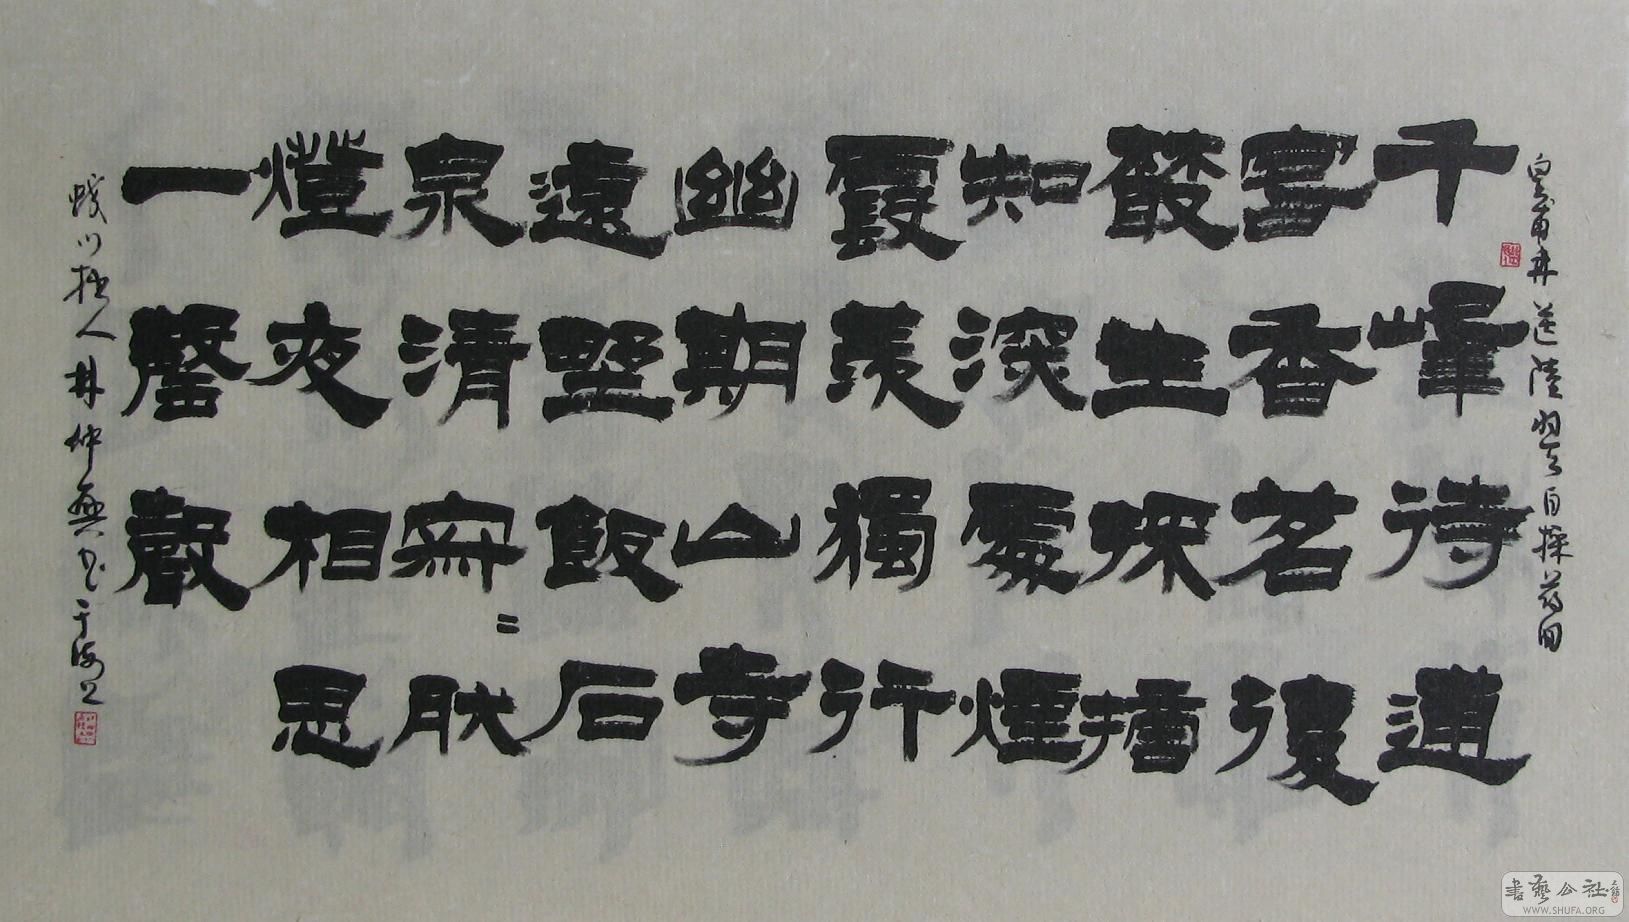 皇甫冉送陸羽自採茶回
千峰待逋
客香茗復
叢生採摘
知深處煙
霞羨獨行
幽期山寺
遠野飯石
泉清寂〻肰
燈夜相思
一磬聲
川拙人林仲興书于海上
書藝公社
WWW.SHUFA.ORG